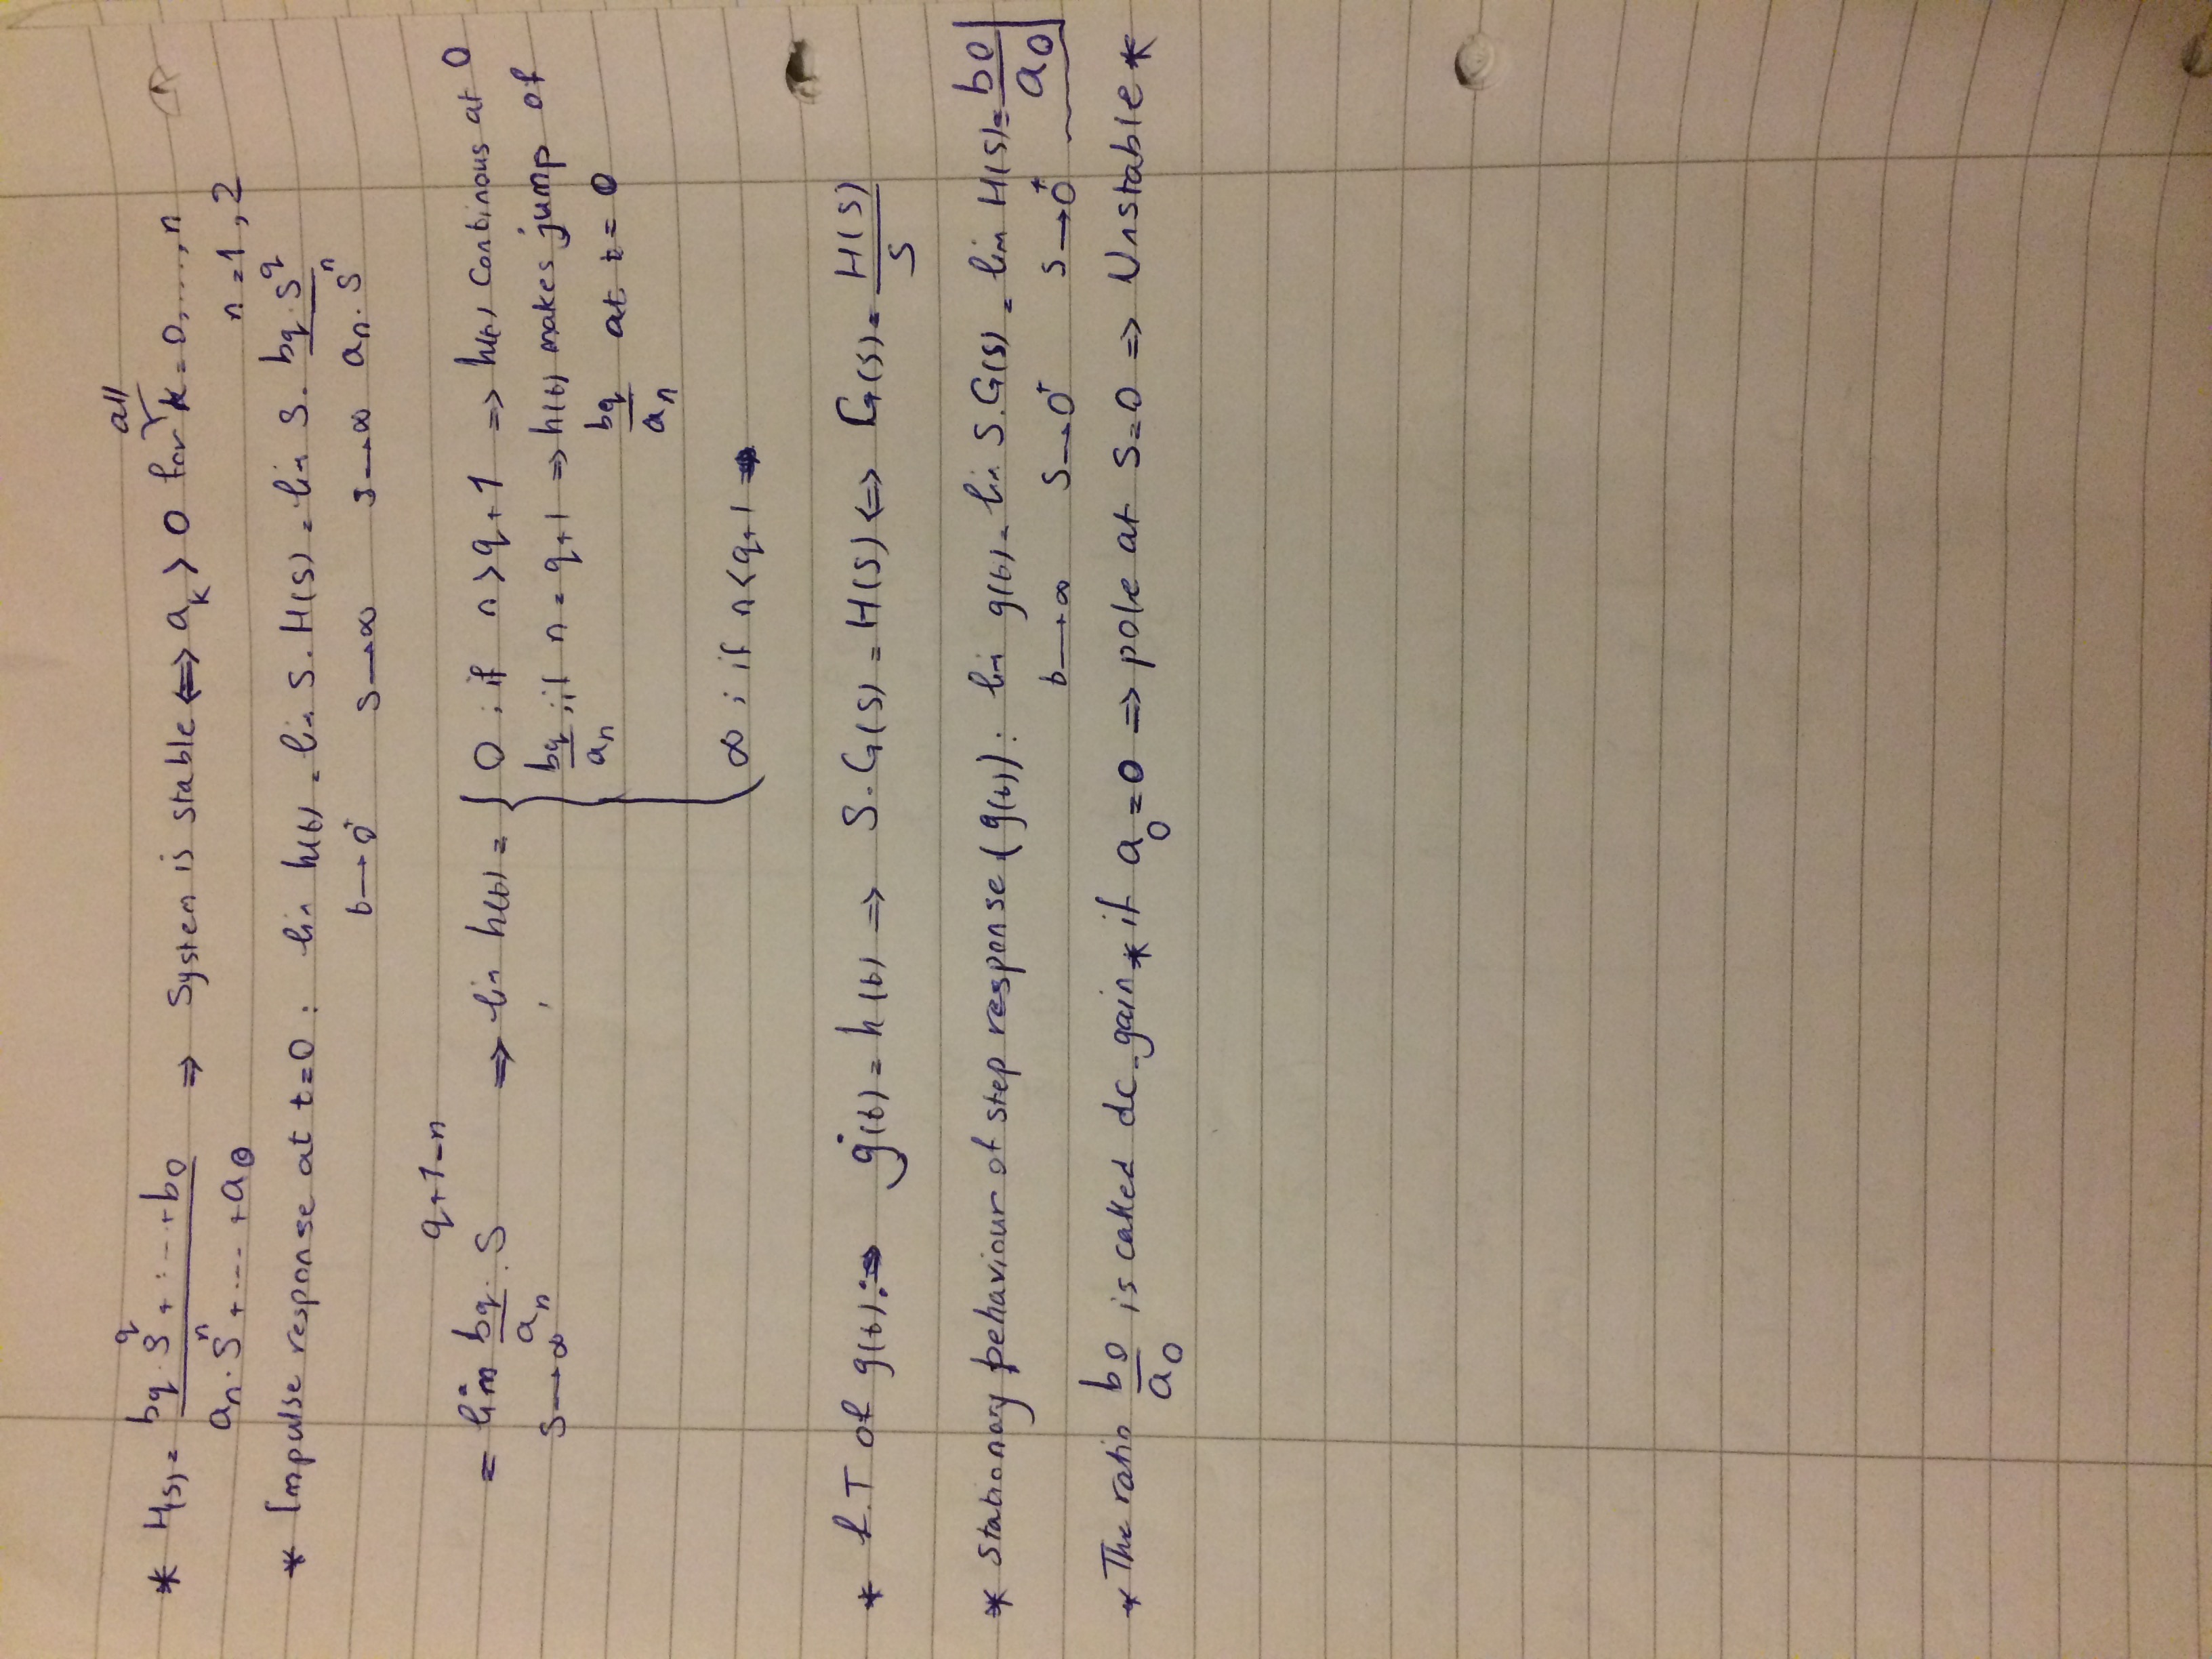 * H(s) = (bq . s^q + ... + b0) / (an . s^n + ... + a0) ⇒ System is stable ⟺ a_k > 0 for all k = 0, ..., n
n = 1, 2
* Impulse response at t=0 : lim h(t) = lim s . H(s) = lim s . (bq . s^q) / (an . s^n)
t → 0⁺ s → ∞ s → ∞
= lim (bq / an) . s^(q+1-n) ⇒ lim h(t) = { 0 ; if n > q+1 ⇒ h(t) Continous at 0
s → ∞
bq / an ; if n = q+1 ⇒ h(t) makes jump of
bq / an at t = 0
∞ ; if n < q+1 ⇒
* L.T of g(t) : ⇒ ġ(t) = h(t) ⇒ S . G(s) = H(s) ⟺ G(s) = H(s) / s
* Stationary behaviour of step response (g(t)) : lim g(t) = lim S . G(s) = lim H(s) = b0 / a0
t → ∞ s → 0⁺ s → 0⁺
* The ratio b0 / a0 is called dc-gain * if a0 = 0 ⇒ pole at s = 0 ⇒ Unstable *